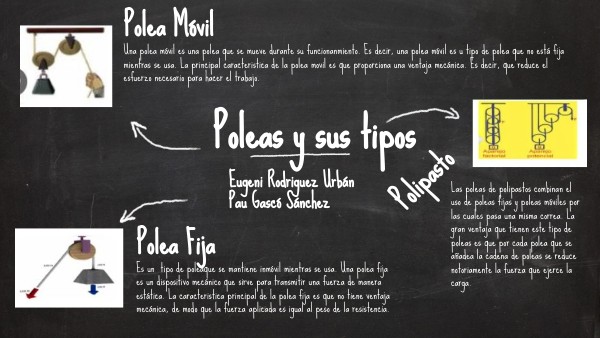 Polea Móvil
Una polea móvil es una polea que se mueve durante su funcionanmiento. Es decir, una polea móvil es u tipo de polea que no está fija
mientras se usa. La principal caracteristica de la polea movil es que proporciona una ventaja mecánica. Es decir, que reduce el
esfuerzo necesario para hacer el trabajo.
Poleas y sus tipos
Eugeni Rodríguez Urbán
Pau Gascó Sánchez
Aparejo
factorial
Aparejo
potencial
Polipasto
Las poleas de polipastos combinan el
uso de poleas fijas y poleas móviles por
las cuales pasa una misma correa. La
gran ventaja que tienen este tipo de
poleas es que por cada polea que se
añadea la cadena de poleas se reduce
notoriamente la fuerza que ejerce la
carga.
Polea Fija
Es un tipo de poleaque se mantiene inmóvil mientras se usa. Una polea fija
es un dispositivo mecánico que sirve para transmitir una fuerza de manera
estática. La característica principal de la polea fija es que no tiene ventaja
mecánica, de modo que la fuerza aplicada es igual al peso de la resistencia.